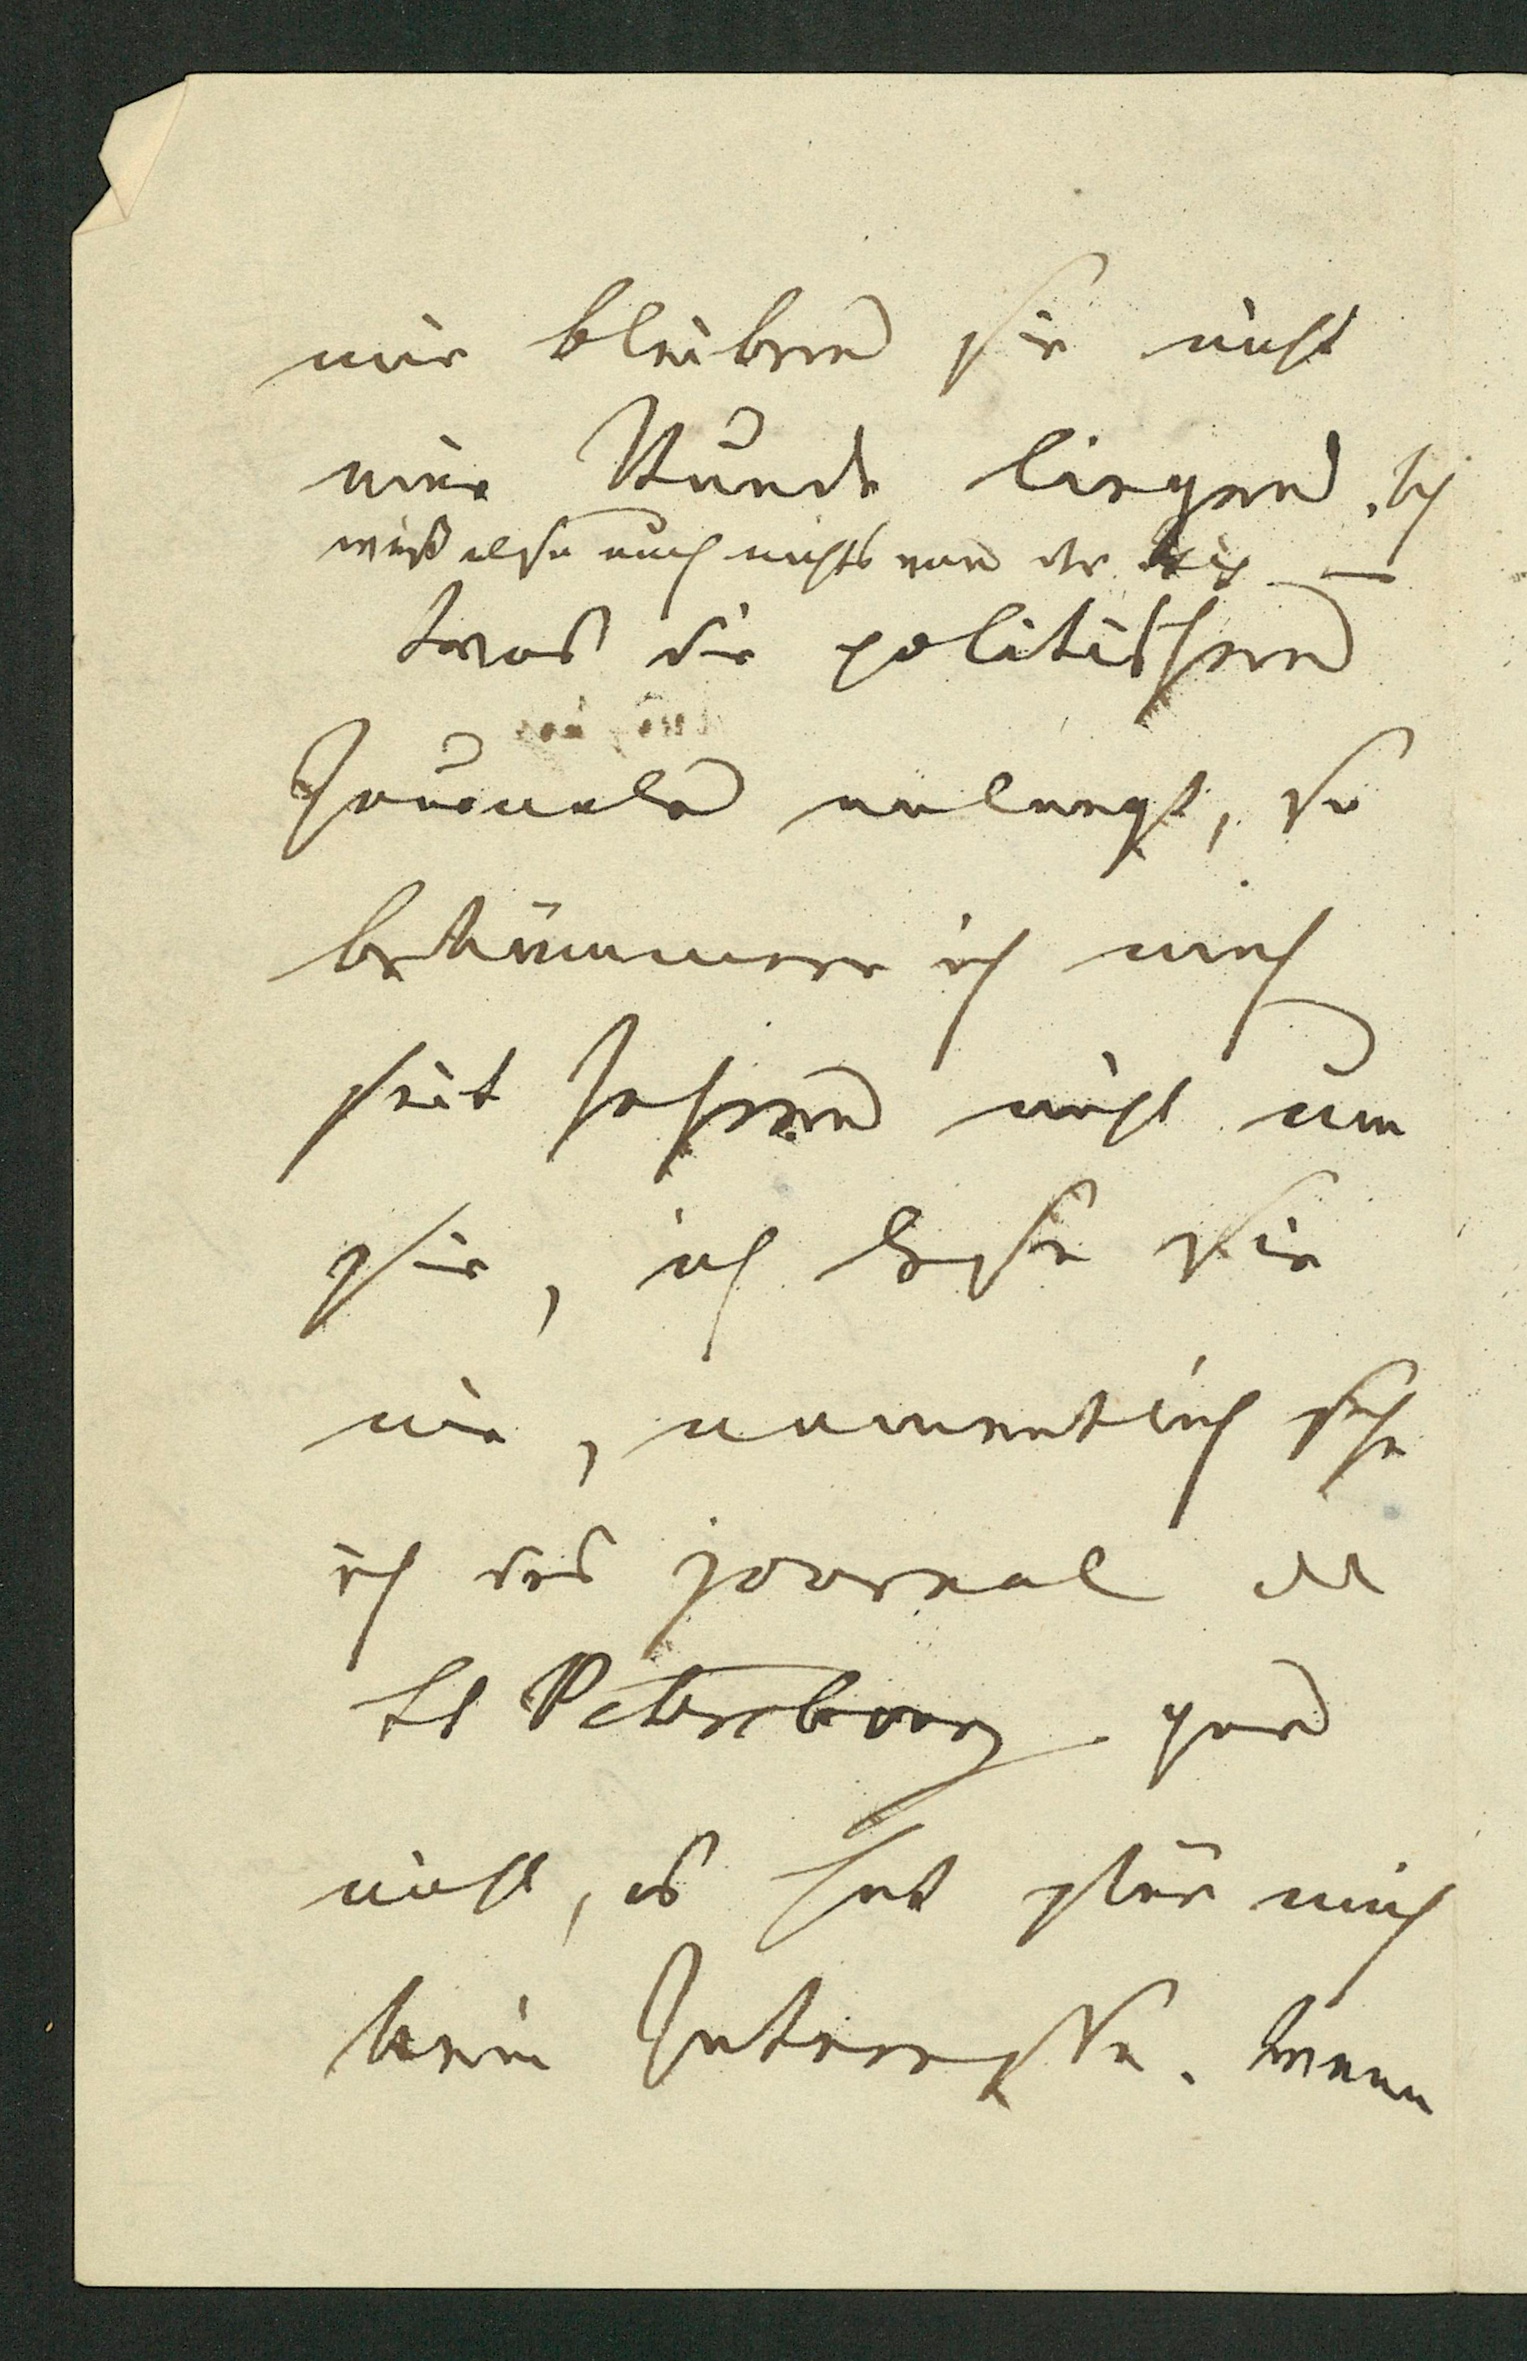 mir bleiben sie nicht
eine Stunde liegen. Ich
weiß also auch nichts von der
Was die politischen
Journale anlangt, so
bekümmere ich mich
seit Jahren nicht um
sie, ich lese sie
nie, namentlich sehe
ich das journal de
St Petersbourg gar
nicht, es hat für mich
kein Interesse. Wenn